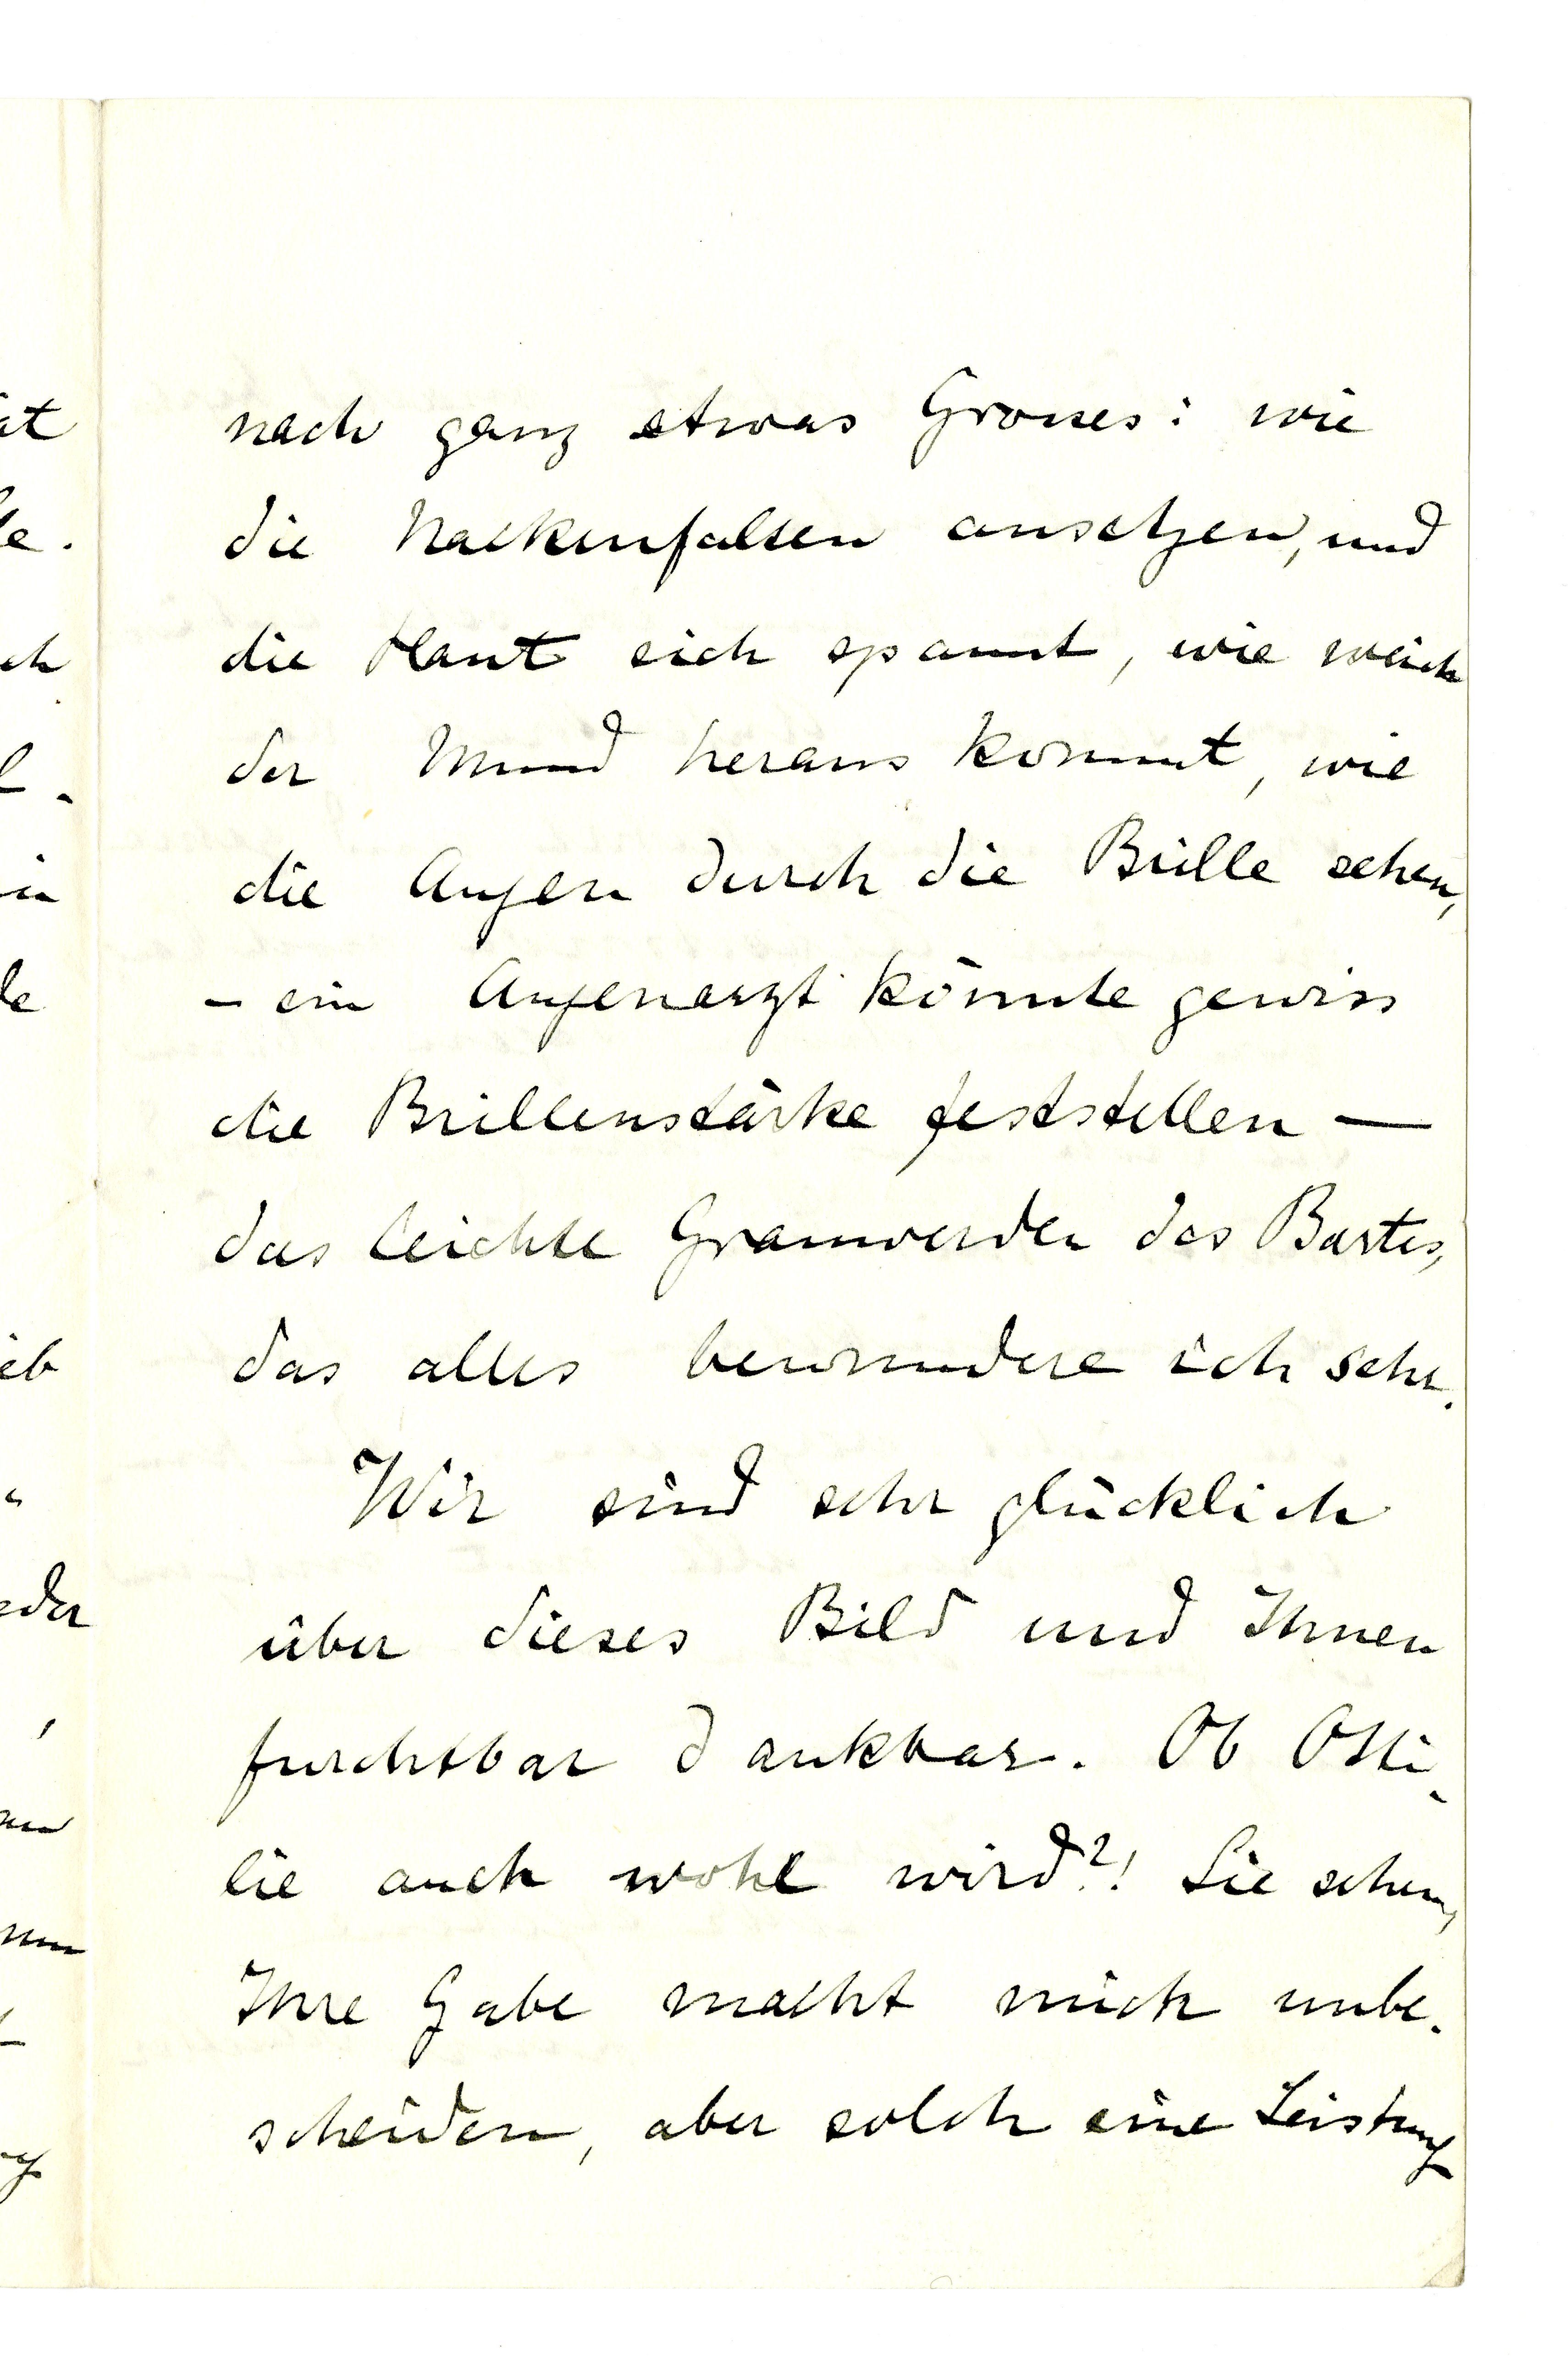 nach ganz etwas Grosses: wie
die Nackenfalten ansetzen, und
die Haut sich spannt, wie weich
der Mund heraus kommt, wie
die Augen durch die Brille sehen,
- ein Augenarzt könnte gewiss
die Brillenstärke feststellen —
das leichte Grauwerden des Bartes,
das alles bewundere ich sehr.
Wir sind sehr glücklich
über dieses Bild und Ihnen
furchtbar dankbar. Ob Otti-
lie auch wohl wird?! Sie sehen,
Ihre Gabe macht mich unbe-
scheiden, aber solch eine Leistung